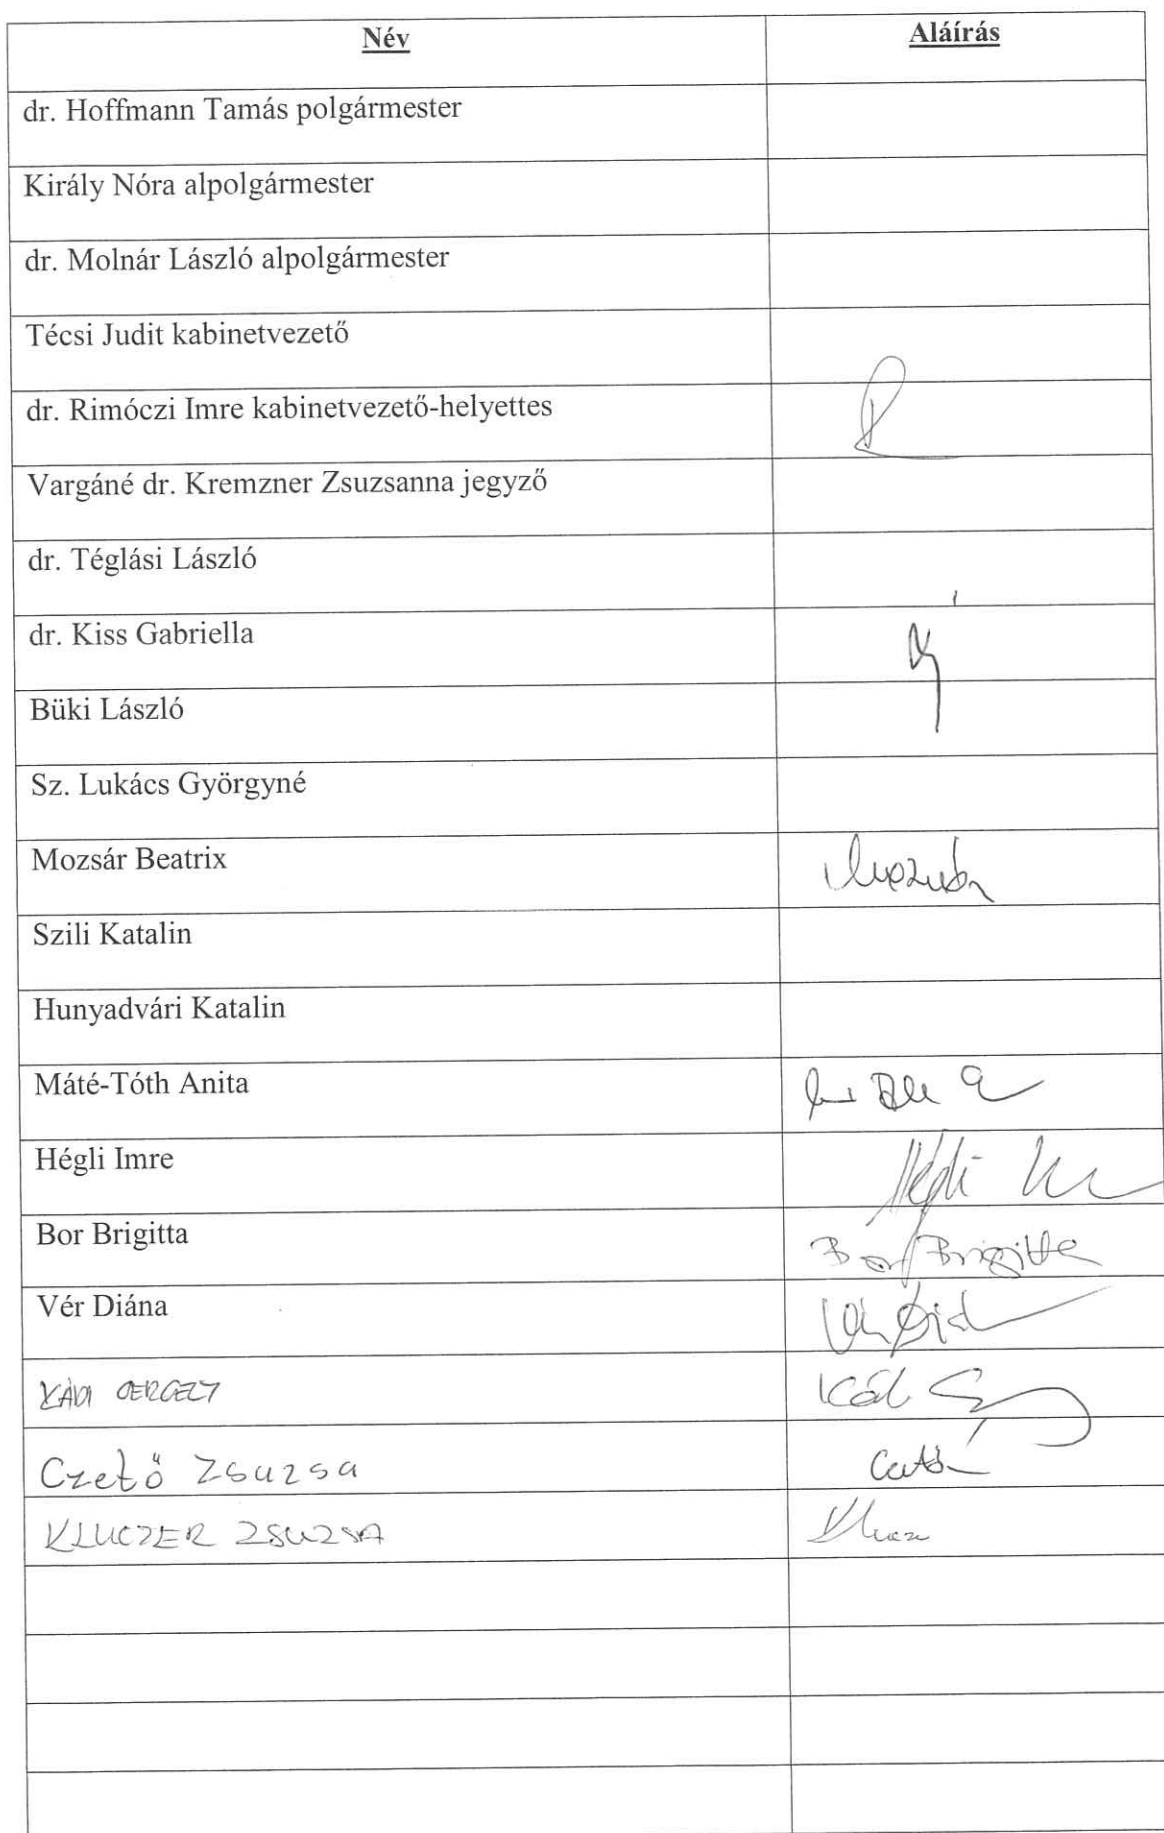 Név Aláírás
dr. Hoffmann Tamás polgármester
Király Nóra alpolgármester
dr. Molnár László alpolgármester
Técsi Judit kabinetvezető
dr. Rimóczi Imre kabinetvezető-helyettes
Vargáné dr. Kremzner Zsuzsanna jegyző
dr. Téglási László
dr. Kiss Gabriella
Büki László
Sz. Lukács Györgyné
Mozsár Beatrix
Szili Katalin
Hunyadvári Katalin
Máté-Tóth Anita
Hégli Imre Hégli
Bor Brigitta Bor Brigitta
Vér Diána
KÁDI GERGELY
Czető Zsuzsa
KLUCZER ZSUZSA